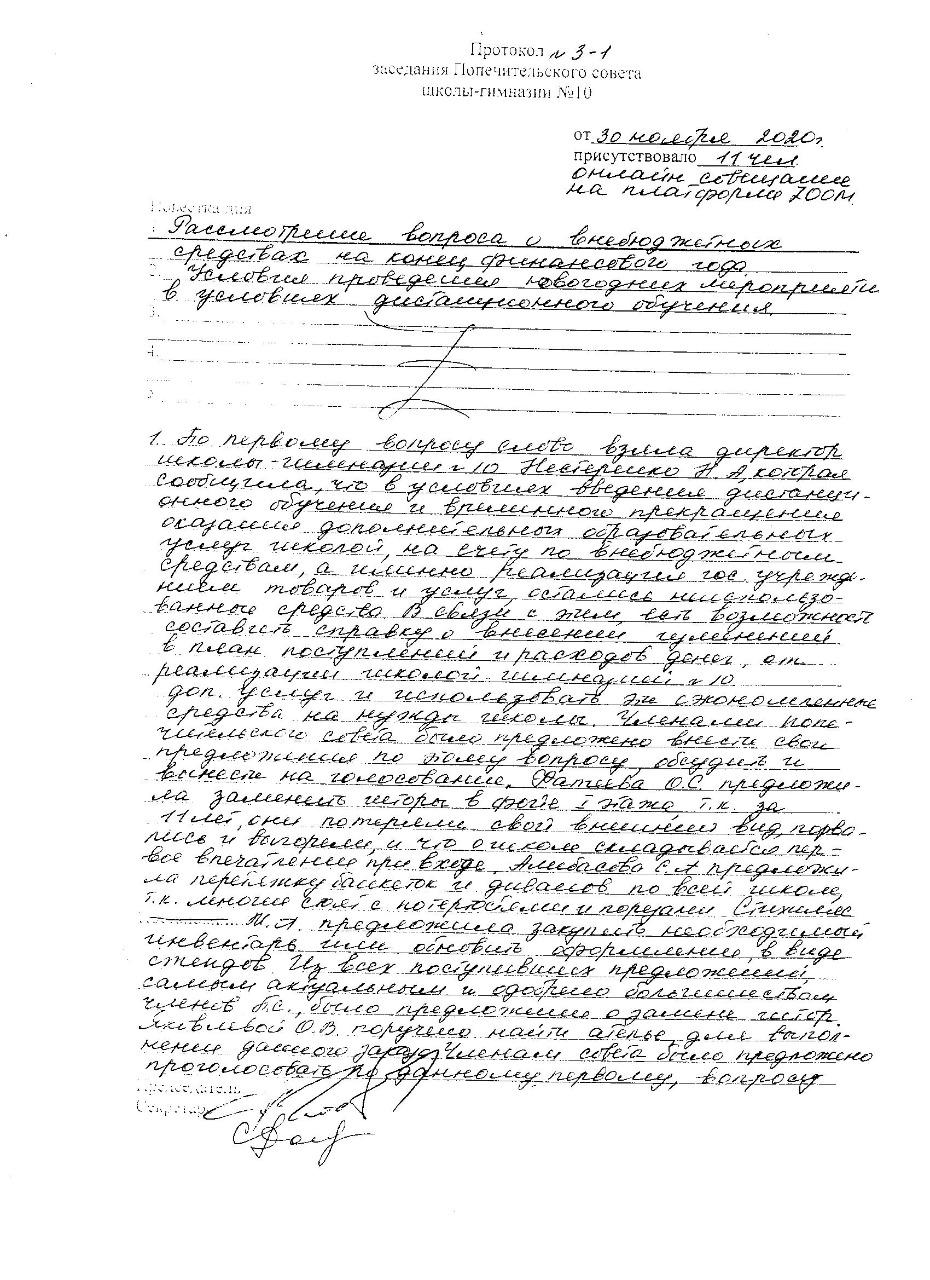 Протокол № 3-1
заседания Попечительского совета
школы-гимназии №10
от 30 ноября 2020г
присутствовало 11 чел
онлайн совещание
на платформе ZOOM.
Повестка дня
Рассмотрение вопроса о внебюджетных
средствах на конец финансового года
Условия проведения новогодних мероприяти
в условиях дистанционного обучения.
3.
4.
5.
1. По первому вопросу слово взяла директор
школы-гимназии №10 Нестеренко Н.А, которая
сообщила, что в условиях введения дистанци-
онного обучения и временного прекращения
оказания дополнительных образовательных
услуг школой, на счету по внебюджетным
средствам, а именно реализация гос учрежде-
нием товаров и услуг, остались неиспользо-
ванные средства. В связи с этим, есть возможность
составить справку о внесении изменений
в план поступлений и расходов денег, от
реализации школой гимназией №10
доп. услуг и использовать эти сэкономленные
средства на нужды школы. Членами попе-
чительского совета было предложено внести свои
предложения по этому вопросу, обсудить и
вынести на голосование. Фатеева О.С. предложи-
ла заменить шторы в фойе I этажа т.к. за
11 лет, они потеряли свой внешний вид, порва-
лись и выгорели, и что о школе складывается пер-
вое впечатление при входе. Алибасова С.А предложи-
ла перетяжку банкеток и диванов по всей школе,
т.к. многие стоят с потертостями и порезами.
М.А. предложила закупить необходимый
инвентарь или обновить оформление, в виде
стендов. Из всех поступивших предложений,
самым актуальным и одобрено большинством
членов П.С., было предложение о замене штор.
Яковлевой О.В. поручено найти ателье, для выпол-
нения данного заказа. Членам совета было предложено
проголосовать по данному первому, вопросу
Председатель
Секретарь